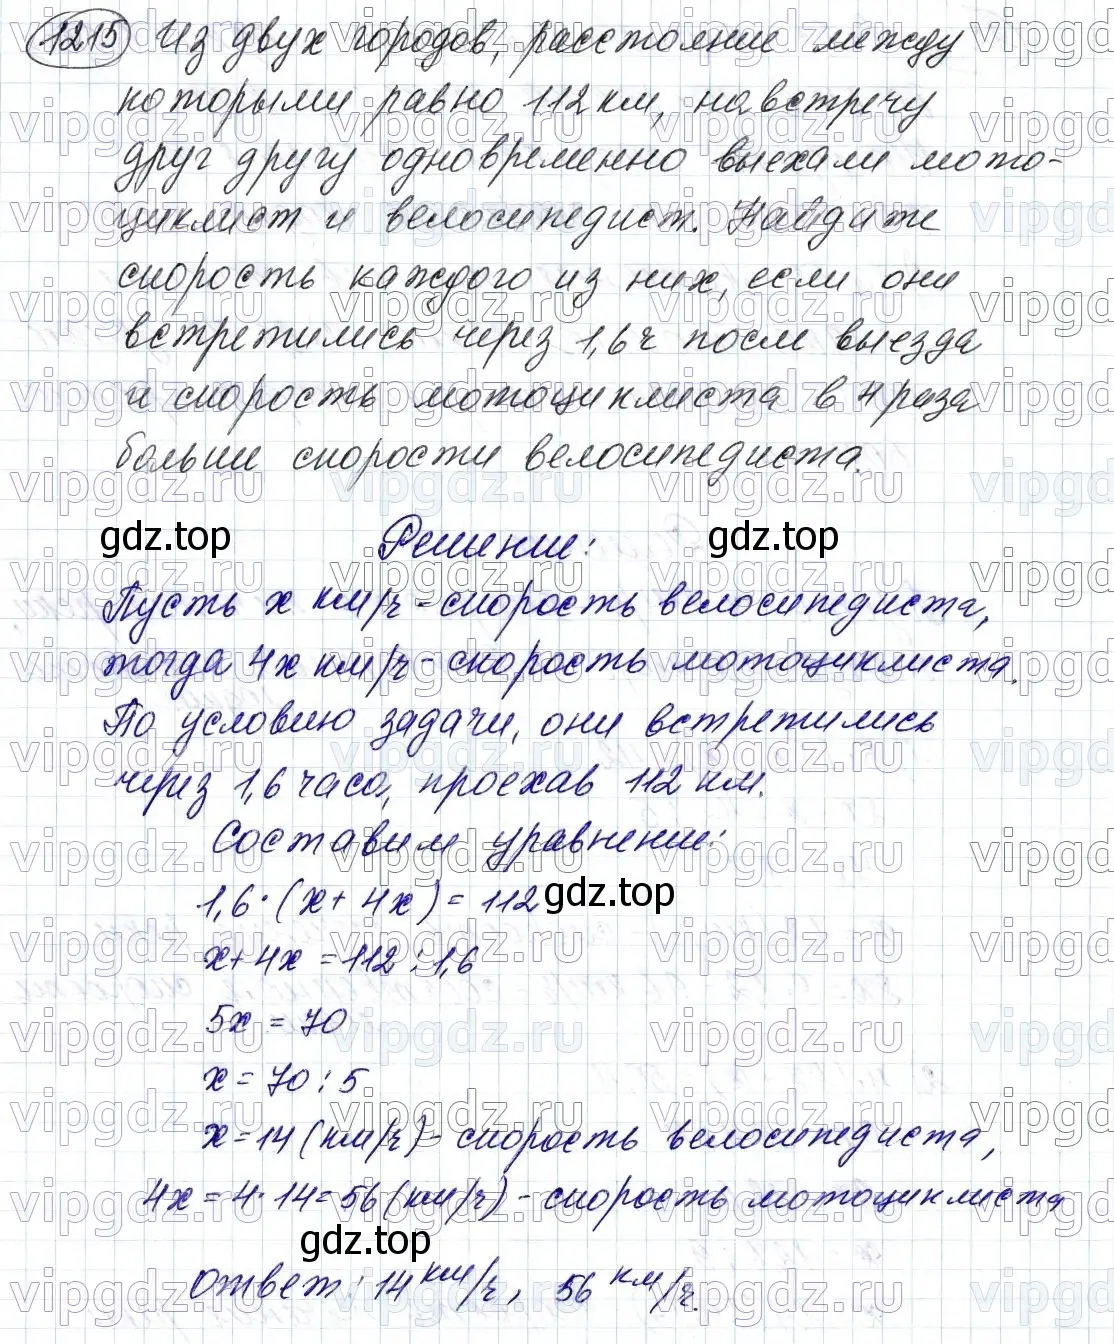 1215 Из двух городов, расстояние между
которыми равно 112 км, навстречу
друг другу одновременно выехали мото-
циклист и велосипедист. Найдите
скорость каждого из них, если они
встретились через 1,6 ч после выезда
и скорость мотоциклиста в 4 раза
больше скорости велосипедиста.
gdz.top Решение: gdz.top
Пусть x км/ч - скорость велосипедиста,
тогда 4x км/ч - скорость мотоциклиста.
По условию задачи, они встретились
через 1,6 часа, проехав 112 км.
Составим уравнение:
1,6 · (x + 4x) = 112 gdz.top
x + 4x = 112 : 1,6
5x = 70
x = 70 : 5
x = 14 (км/ч) - скорость велосипедиста,
4x = 4 · 14 = 56 (км/ч) - скорость мотоциклиста
gdz.top
Ответ: 14 км/ч, 56 км/ч.
vipgdz.ru